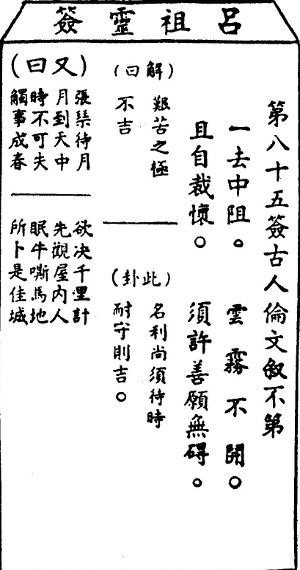 呂祖靈簽
第八十五簽古人倫文叙不第
一去中阻。　雲霧不開。
且自裁懷。　須許善願無碍。
(解曰)
艱苦之極
不吉
(此卦)
名利尚須待時
耐守則吉。
(又曰)
張琹待月
月到天中
時不可失
觸事成春
欲决千里計
先觀屋内人
眠牛嘶馬地
所卜是佳城